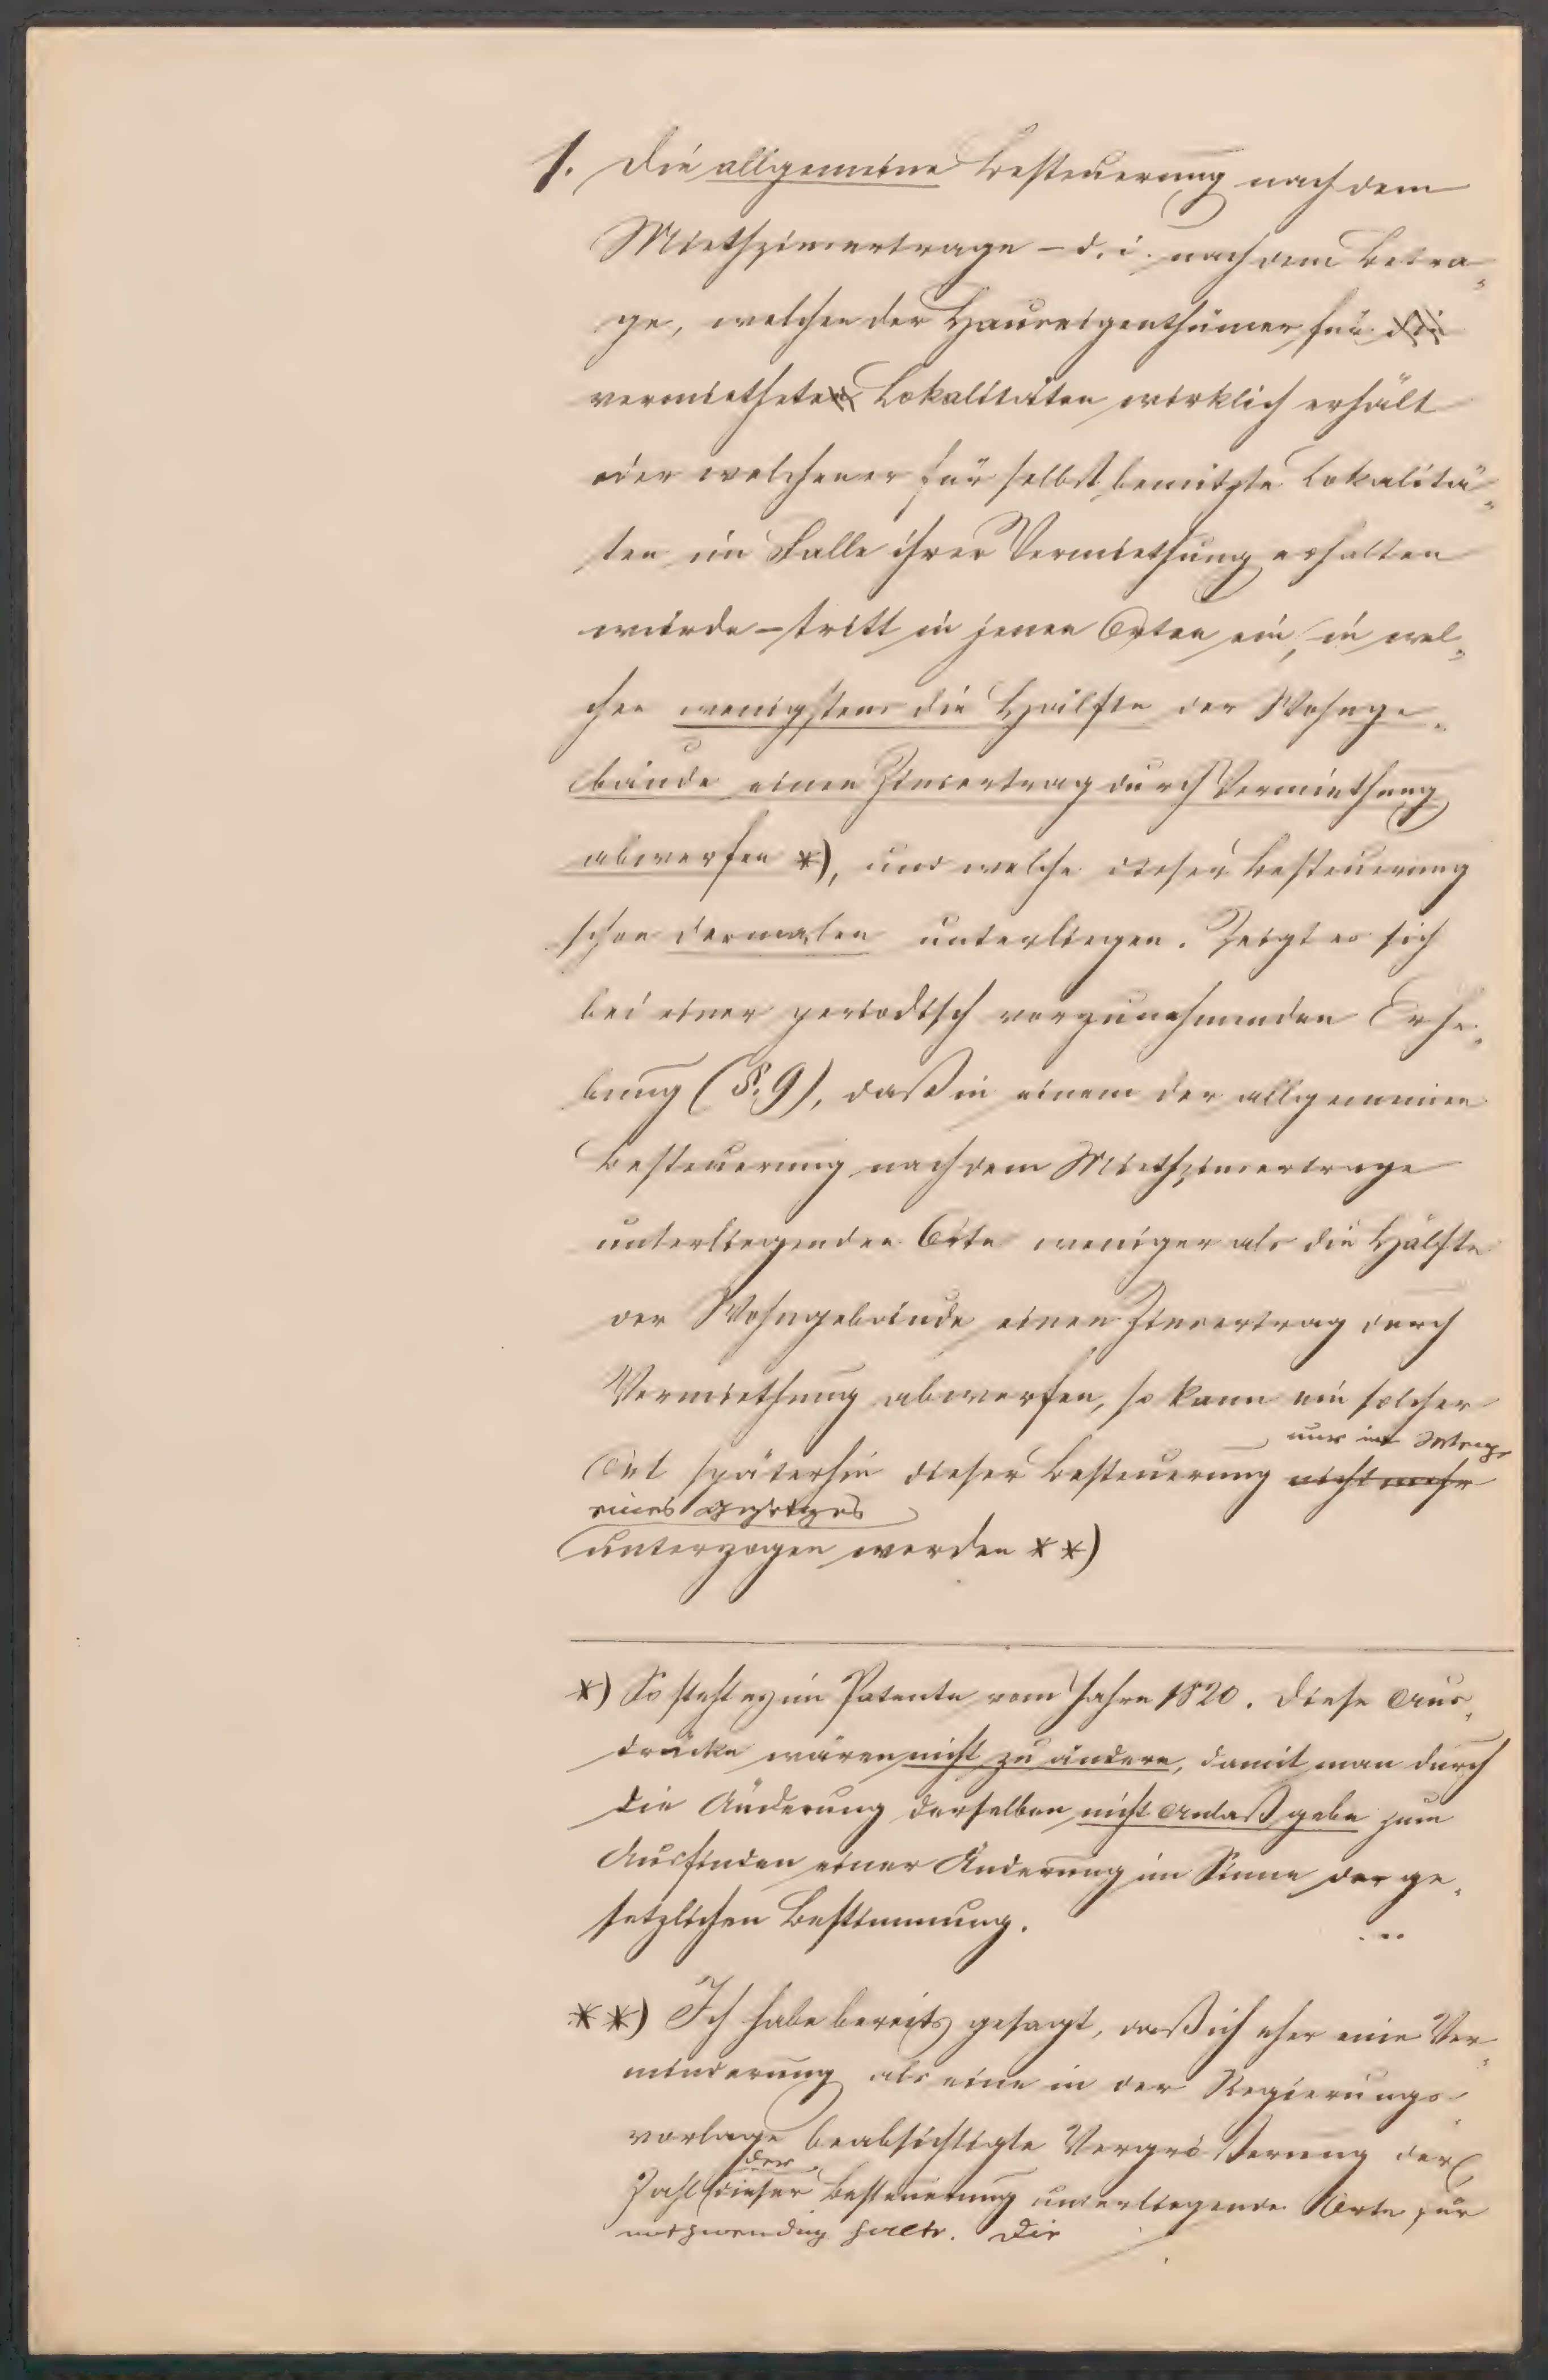 1. Die allgemeine Besteuerung nach dem
Miethzinsertrage – d. i. nach dem Betra-
ge, welchen der Hauseigenthümer für die
vermietheten Lokalitäten wirklich erhält
oder welchen er für selbst benützte Lokalitä-
ten im Falle ihrer Vermiethung erhalten
würde – tritt in jenen Orten ein, in wel-
chen wenigstens die Hälfte der Wohnge-
bäude einen Zinsertrag durch Vermiethung
abwerfen *), und welche dieser Besteuerung
schon dermalen unterliegen. Zeigt es sich
bei einer periodisch vorzunehmenden Erhe-
bung (§. 9), daß in einem der allgemeinen
Besteuerung nach dem Miethzinsertrage
unterliegenden Orte weniger als die Hälfte
der Wohngebäude einen Zinsertrag durch
Vermiethung abwerfen, so kann ein solcher
nur im Wege
Ort späterhin dieser Besteuerung nicht mehr
eines Gesetzes
unterzogen werden **)
*) So steht es im Patente vom Jahre 1820. Diese Aus-
drücke wären nicht zu ändern, damit man durch
die Änderung derselben nicht Anlaß gebe zum
Ausfinden einer Änderung im Sinne der ge-
setzlichen Bestimmung.
**) Ich habe bereits gesagt, daß ich eher eine Ver-
minderung als eine in der Regierungs-
vorlage beabsichtigte Vergrößerung der
der
Zahl dieser Besteuerung unterliegende Orte für
nothwendig halte. Die